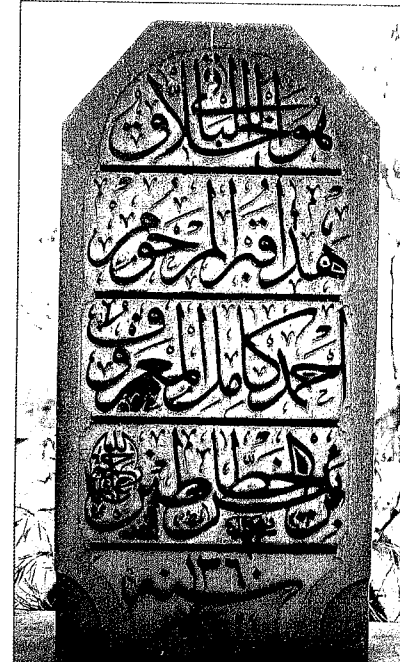 هو الخلاق الباقي
هذا قبر المرحوم
احمد كامل المعروف
برئيس الخطاطين
سنه ١٣٦٠